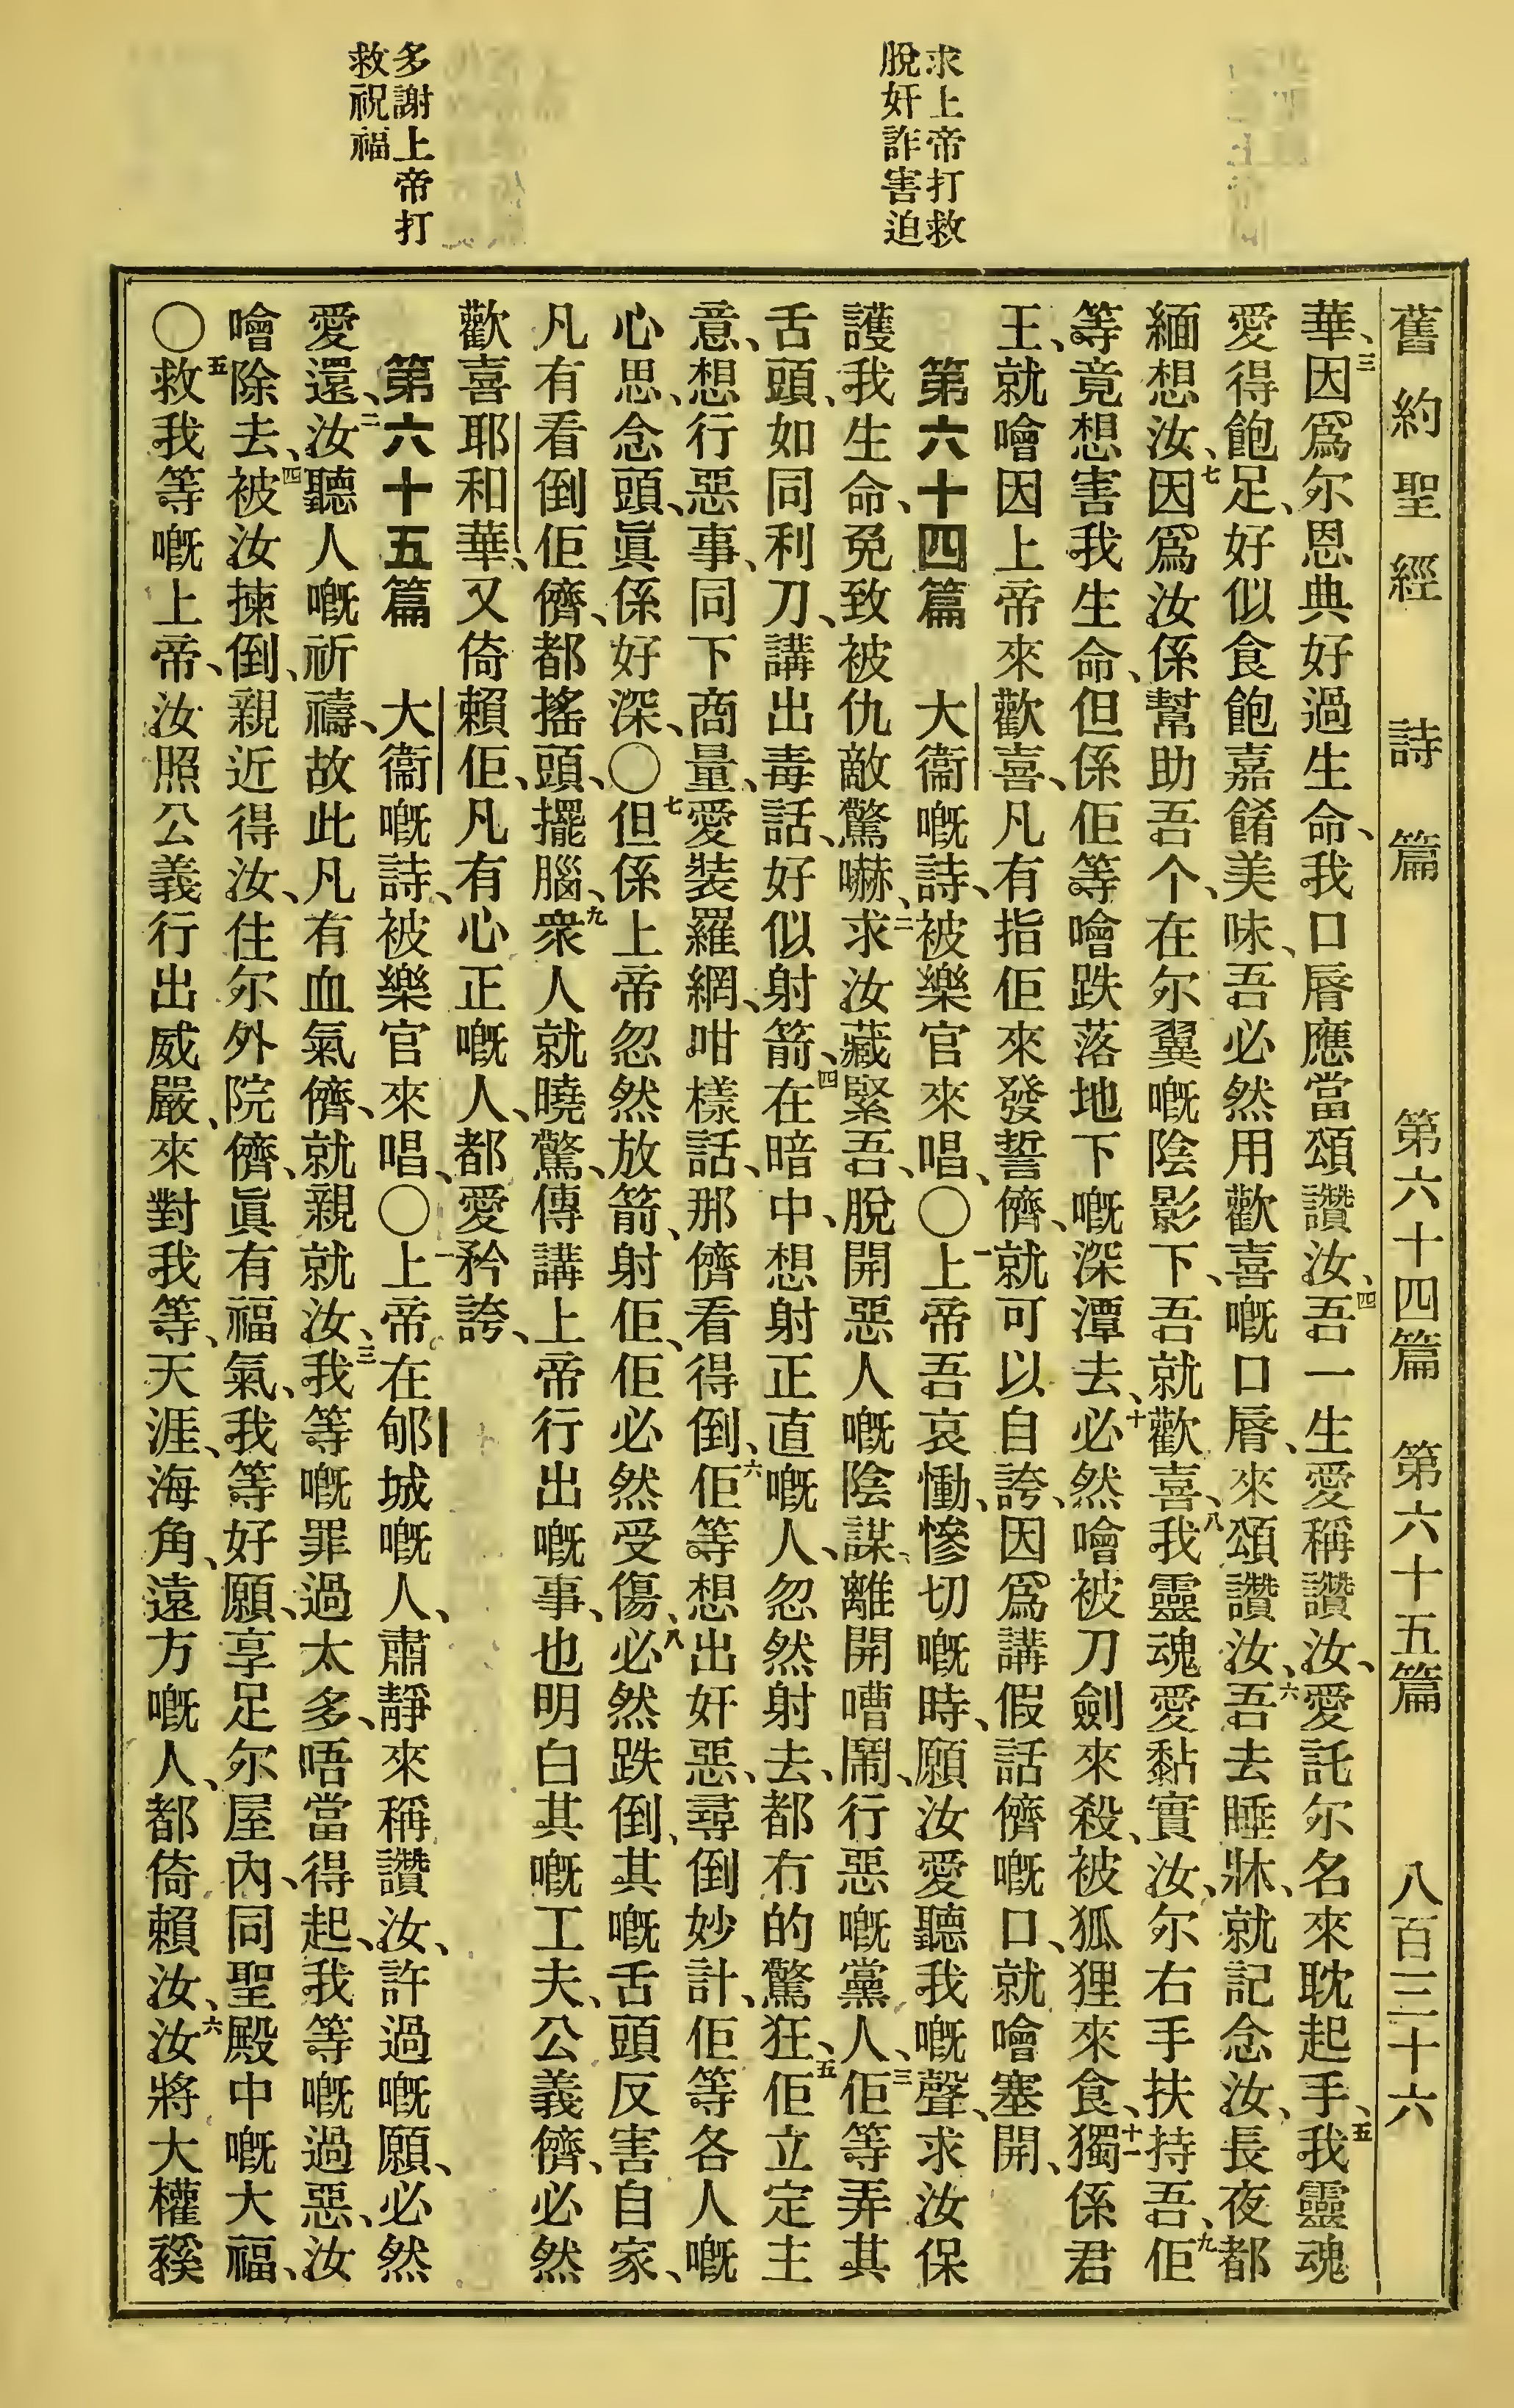 求上帝打救
脫奸詐害迫
多謝上帝打
救祝福
舊約聖經 詩篇 第六十四篇 第六十五篇 八百三十六
華、三因爲尔恩典好過生命、我口唇應當頌讚汝、四吾一生愛稱讚汝、愛託尔名來耽起手、五我靈魂
愛得飽足、好似食飽嘉餚美味、吾必然用歡喜嘅口唇、來頌讚汝、六吾去睡牀、就記念汝、長夜都
緬想汝、七因爲汝係幫助吾个、在尔翼嘅陰影下、吾就歡喜、八我靈魂愛黏實汝、尔右手扶持吾、九佢
等竟想害我生命、但係佢等噲跌落地下嘅深潭去、十必然噲被刀劍來殺、被狐狸來食、十一獨係君
王、就噲因上帝來歡喜、凡有指佢來發誓儕、就可以自誇、因爲講假話儕嘅口、就噲塞開、
第六十四篇 大衞嘅詩、被樂官來唱、〇一上帝吾哀慟、慘切嘅時、願汝愛聽我嘅聲、求汝保
護我生命、免致被仇敵驚嚇、二求汝藏緊吾、脫開惡人嘅陰謀、離開嘈鬧、行惡嘅黨人、三佢等弄其
舌頭、如同利刀、講出毒話、好似射箭、四在暗中、想射正直嘅人、忽然射去、都冇的驚狂、五佢立定主
意、想行惡事、同下商量、愛裝羅網、咁樣話、那儕看得倒、六佢等想出奸惡、尋倒妙計、佢等各人嘅
心思、念頭、眞係好深、〇七但係上帝忽然放箭、射佢、佢必然受傷、八必然跌倒、其嘅舌頭反害自家、
凡有看倒佢儕、都搖頭、擺腦、九衆人就曉驚、傳講上帝行出嘅事、也明白其嘅工夫、公義儕、必然
歡喜耶和華、又倚賴佢、凡有心正嘅人、都愛矜誇、
第六十五篇 大衞嘅詩、被樂官來唱、〇一上帝在郇城嘅人、肅靜來稱讚汝、許過嘅願、必然
愛還、二汝聽人嘅祈禱、故此凡有血氣儕、就親就汝、三我等嘅罪過太多、唔當得起、我等嘅過惡、汝
噲除去、四被汝揀倒、親近得汝、住尔外院儕、眞有福氣、我等好願、享足尔屋內、同聖殿中嘅大福、
〇五救我等嘅上帝、汝照公義行出威嚴、來對我等、天涯、海角、遠方嘅人、都倚賴汝、六汝將大權